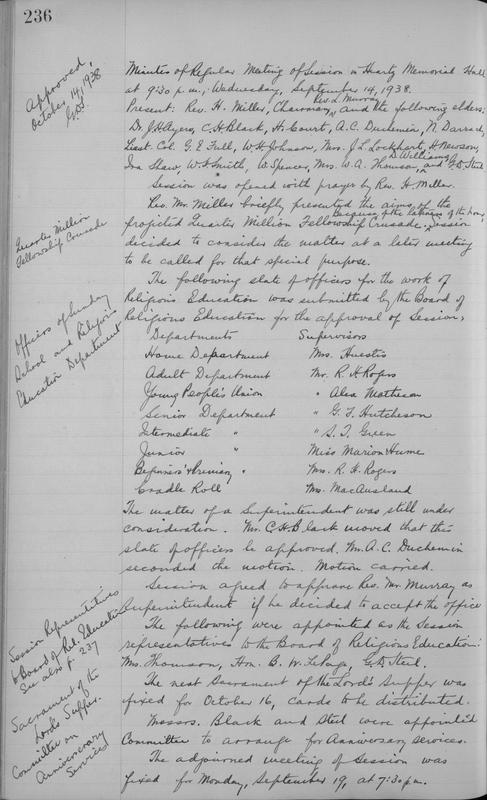 236
Approved,
October 14, 1938
Minutes of Regular Meeting of Session in Hearty Memorial Hall
at 9:30 p.m., Wednesday, September 14, 1938.
Rev. L. Murray
Present: Rev. H. Miller, Chairman, and the following elders:
Dr. J.H. Ayers, C.H. Black, H. Court, A.C. Duchemin, N. Darrach,
Lieut. Col. G.E. Full, W.H. Johnson, Mrs. J.L. Lockhart, H. Newson,
D. Williams
Ira Shaw, W.F. Smith, W. Spencer, Mrs. W.A. Thomson, and G.D. Steel
Session was opened with prayer by Rev. H. Miller.
Quarter Million
Fellowship Crusade
Rev. Mr. Miller briefly presented the aims of the
Because of the lateness of the hour,
projected Quarter Million Fellowship Crusade. Session
decided to consider the matter at a later meeting
to be called for that special purpose.
Officers of Sunday
School and Religious
Education Department
The following slate of officers for the work of
Religious Education was submitted by the Board of
Religious Education for the approval of Session,
Departments Supervisors
Home Department Mrs. Huestis
Adult Department Mr. R. H. Rogers
Young People's Union " Alex Matheson
Senior Department " G. F. Hutcheson
Intermediate " " S. T. Green
Junior " Miss Marion Hume
Beginners' & Primary " Mrs. R. H. Rogers
Cradle Roll Mrs. MacAusland
The matter of a Superintendent was still under
consideration. Mr. C.H. Black moved that the
slate of officers be approved. Mr. A.C. Duchemin
seconded the motion. Motion carried.
Session agreed to approve Rev. Mr. Murray as
Superintendent if he decided to accept the office
Session Representatives
to Board of Rel. Education
See also p. 237
The following were appointed as the Session
representatives to the Board of Religious Education:
Mrs. Thomson, Hon. B. W. LePage, G.D. Steel.
Sacrament of the
Lord's Supper.
The next Sacrament of the Lord's Supper was
fixed for October 16, cards to be distributed.
Committee on
Anniversary
Services
Messrs. Black and Steel were appointed
Committee to arrange for Anniversary services.
The adjourned meeting of Session was
fixed for Monday, September 19, at 7:30 p.m.